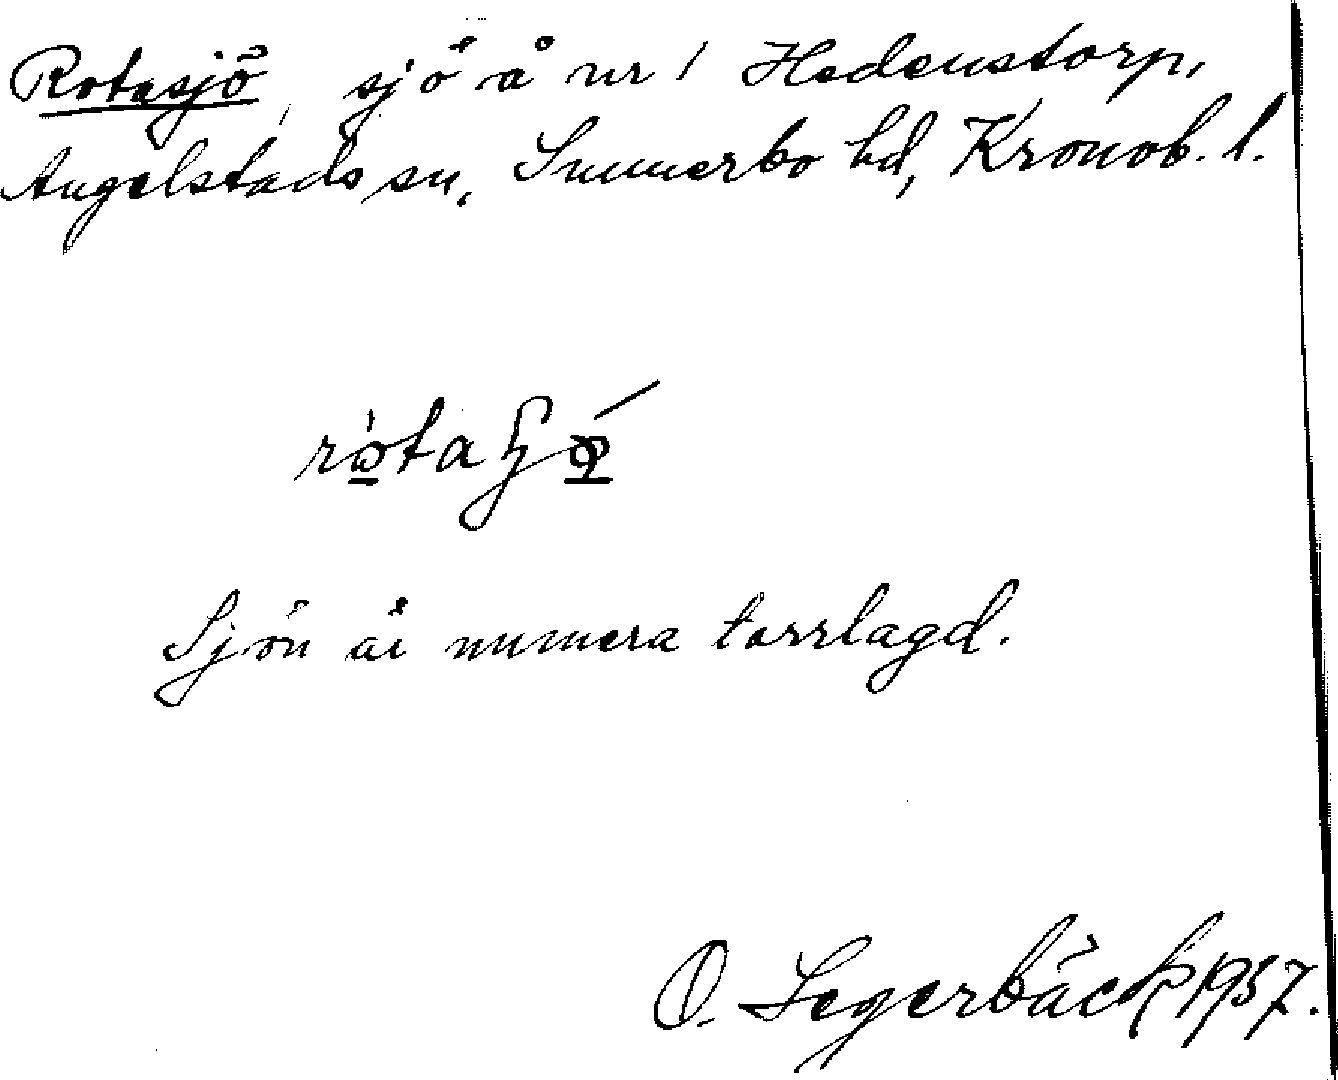 Rotasjö, sjö å nr 1 Hedenstorp,
Angelstads sn, Sunnerbo hd, Kronob. l.
Sjön är numera torrlagd.
O. Segerbäck 1957.